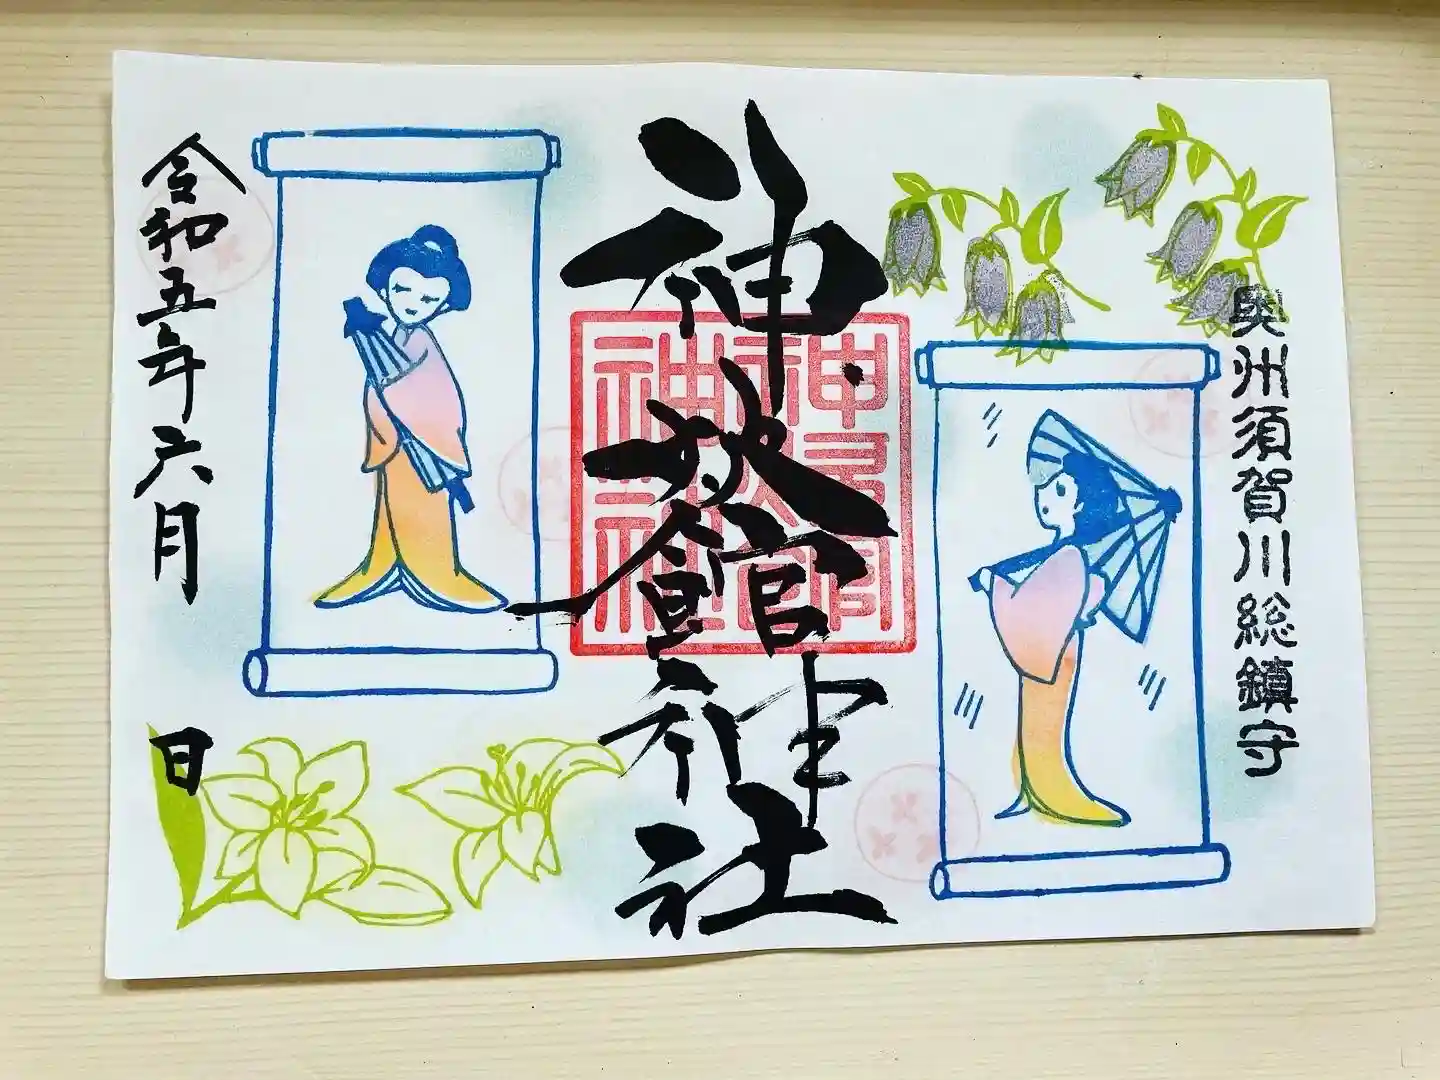 奥州須賀川総鎮守
神炊館神社
令和五年六月　日